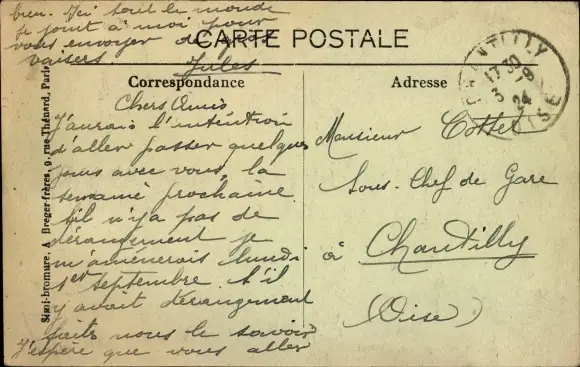 CARTE POSTALE
Correspondance
Chers Amis
J'aurais l'intention
d'aller passer quelques
jours avec vous, la
semaine prochaine
s'il n'y a pas de
dérangement je
m'aménerais lundi
1er septembre. S'il
y avait dérangement
faites nous le savoir
J'espère que vous allez
bien. Ici tout le monde
se joint à moi pour
vous envoyer de gros
baisers
Jules
Adresse
Monsieur Cottel
Sous-Chef de Gare
à Chantilly
(Oise)
CHANTILLY
17 30
3 -9
24
OISE
Simil-bromure. A Breger frères, 9, rue Thénard, Paris